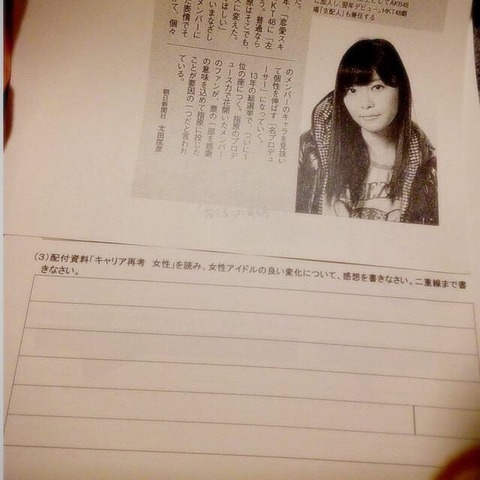 としてAKB48
に加入し、翌年デビュー。HKT48劇
場「支配人」も兼任する
た。
年、「恋愛スキ
KT48に「左
う。普通なら
原はそこでも、
スに変えた。
ほしい
いまなざし
メンバーに
た表情でそ
てて、個々
のメンバーのキャラを見抜い
て個性を伸ばす「名プロデュ
ーサー」になっていく。
13年の総選挙で、ついに1
位の座につく。指原のプロデ
ュース力で花開いたメンバー
のファンが、票の一部を感謝
の意味を込めて指原に投じた
ことが要因の一つだと言われ
ている。
朝日新聞社 太田匡彦
(3)配付資料「キャリア再考 女性」を読み、女性アイドルの良い変化について、感想を書きなさい。二重線まで書
きなさい。